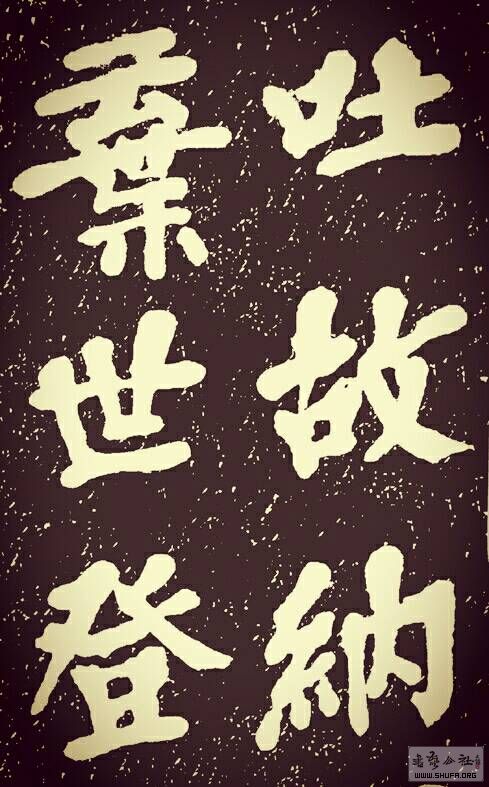 吐故納
棄世登
WWW.SHUFA.ORG